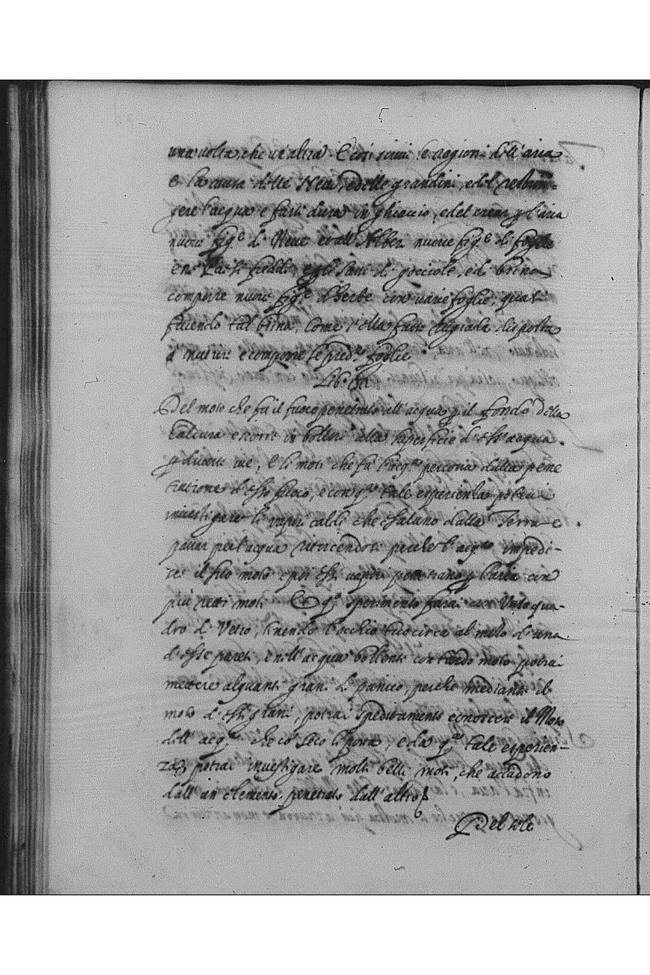 una volta che un'altra. E così scrivi le cagioni dell'aria
e la causa delle Neve, e delle grandini, e del restrin-
gere l'acqua e farsi dura in ghiaccio, e del creare p l'aria
nuove fig.e di Neve et all'Alberi nuove fig.e di foglie
e ne sassi freddi, di gocciole, e di brina
comporre nuove fig.e d'Herbe con varie foglie, quasi
facendo tal brina, come s'ella fusse rugiada disposta
a nutrire e comporre le pred.e foglie
Del moto che fa il fuoco penetrato all'acqua p il fondo della
caldara e corre in bollori alla superficie d'essa acqua
p diverse vie, e li moti che fa l'acq.a percossa dalla pene
tratione d'esso fuoco, e con q.a tale esperienza potrai
investigare li vapori caldi che esalano dalla Terra e
passar per l'acqua ritorcendosi perche l'acq.a impedi-
sce il suo moto e poi essi vapori penetrano p l'aria con
più retti moti. Et q.o sperimento farai con Vaso qua-
dro di Vetro, tenendo l'occhio tuo circa al mezo d'una
d'esse pareti, e nell'acqua bollente con tardo moto potrai
mettere alquanti grani di panico, perche mediante il
moto d'essi grani, potrai speditamente conoscere il Moto
dell'acq.a che co' loco li porta, e da q.a tale esperien-
za, potrai investigare molti belli moti, che accadeno
dall'un elemento penetrato dall'altro
Del sole